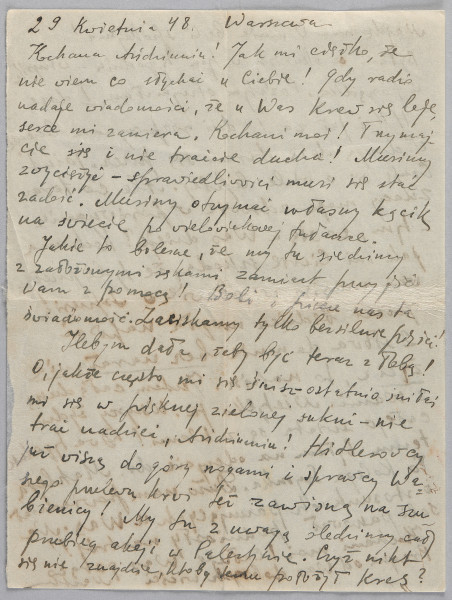 29 Kwietnia 48. Warszawa
Kochana! Jak mi ciężko, że
nie wiem co słychać u Ciebie! Gdy radio
nadaje wiadomości, że u Was krew się leje,
serce mi zamiera. Kochani moi! Trzymaj-
cie się i nie traćcie ducha! Musimy
zwyciężyć – sprawiedliwości musi się stać
zadość. Musimy otrzymać własny kącik
na świecie po wielowiekowej tułaczce.
Jakie to bolesne, że my tu siedzimy
z założonymi rękami zamiast przyjść
Wam z pomocą! Boli i piecze nas ta
świadomość. Zaciskamy tylko bezsilnie pięści!
Ileż bym dała, żeby być teraz z Tobą!
O, jakże często mi się śnisz – ostatnio śniłaś
mi się w pięknej zielonej sukni – nie
trać nadziei! Hitlerowcy
już wiszą do góry nogami i sprawcy Wa-
szego przelewu krwi też zawisną na szu-
bienicy! My tu z uwagą śledzimy cały
przebieg akcji w Palestynie. Czyż nikt
się nie znajdzie, ktoby temu położył kres?